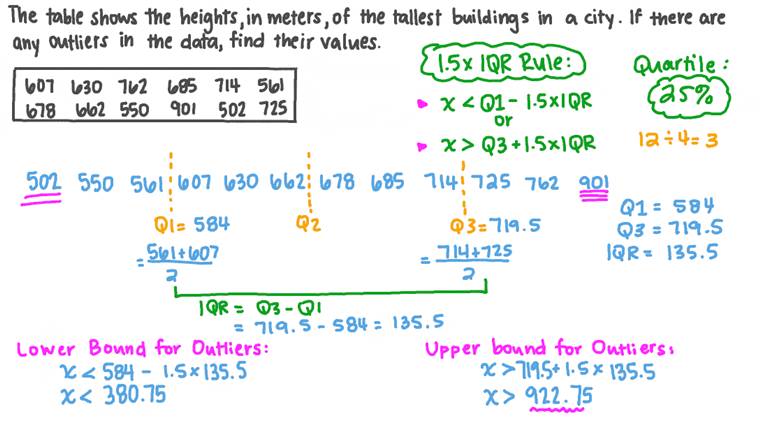 The table shows the heights, in meters, of the tallest buildings in a city. If there are
any outliers in the data, find their values.
607 630 762 685 714 561
678 662 550 901 502 725
1.5x IQR Rule:
x < Q1 - 1.5xIQR
or
x > Q3 + 1.5xIQR
Quartile:
25%
12 ÷ 4 = 3
502 550 561 607 630 662 678 685 714 725 762 901
Q1 = 584
= 561+607
2
Q2
Q3 = 719.5
= 714+725
2
Q1 = 584
Q3 = 719.5
IQR = 135.5
IQR = Q3 - Q1
= 719.5 - 584 = 135.5
Lower Bound for Outliers:
x < 584 - 1.5 x 135.5
x < 380.75
Upper bound for Outliers:
x > 719.5 + 1.5 x 135.5
x > 922.75